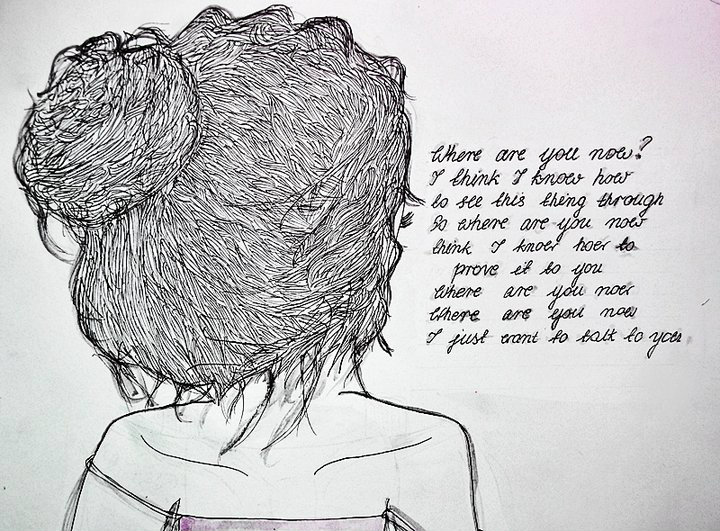 Where are you now?
I think I know how
to see this thing through
So where are you now
think I know how to
prove it to you
Where are you now
Where are you now
I just want to talk to you